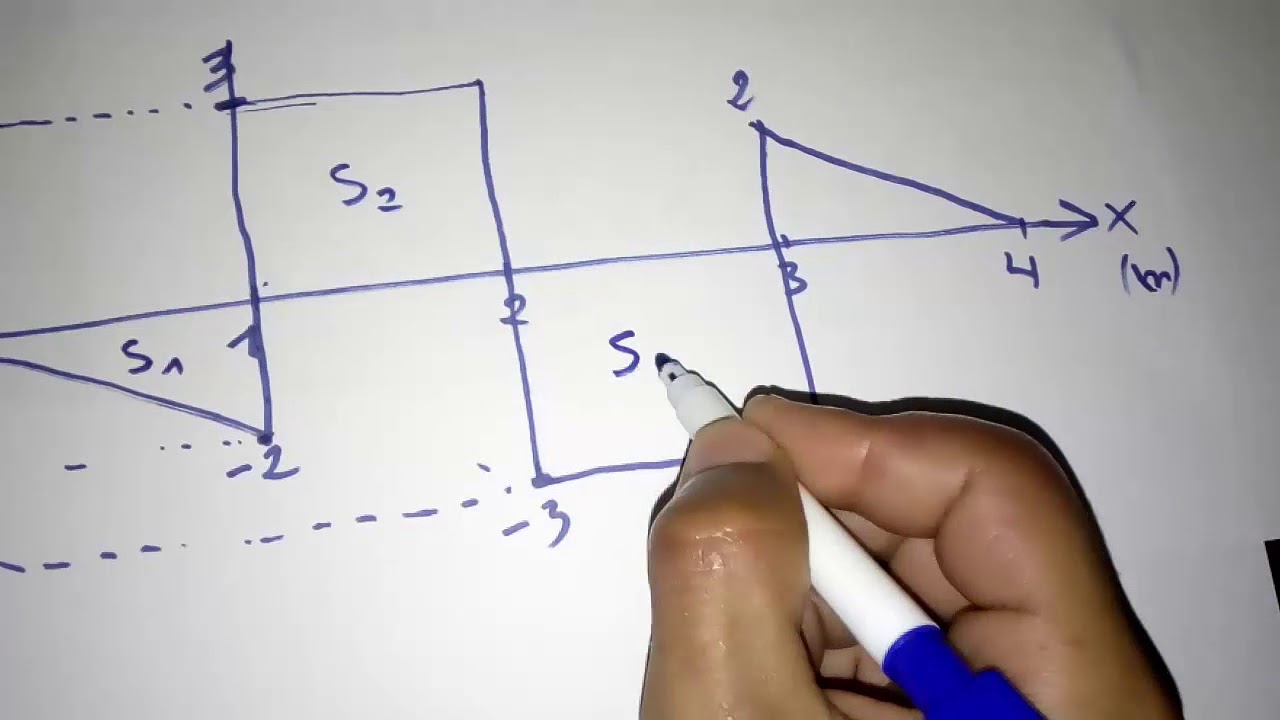 3
2
S₂
X
(m)
1
2
3
4
S₁
S
-2
-3